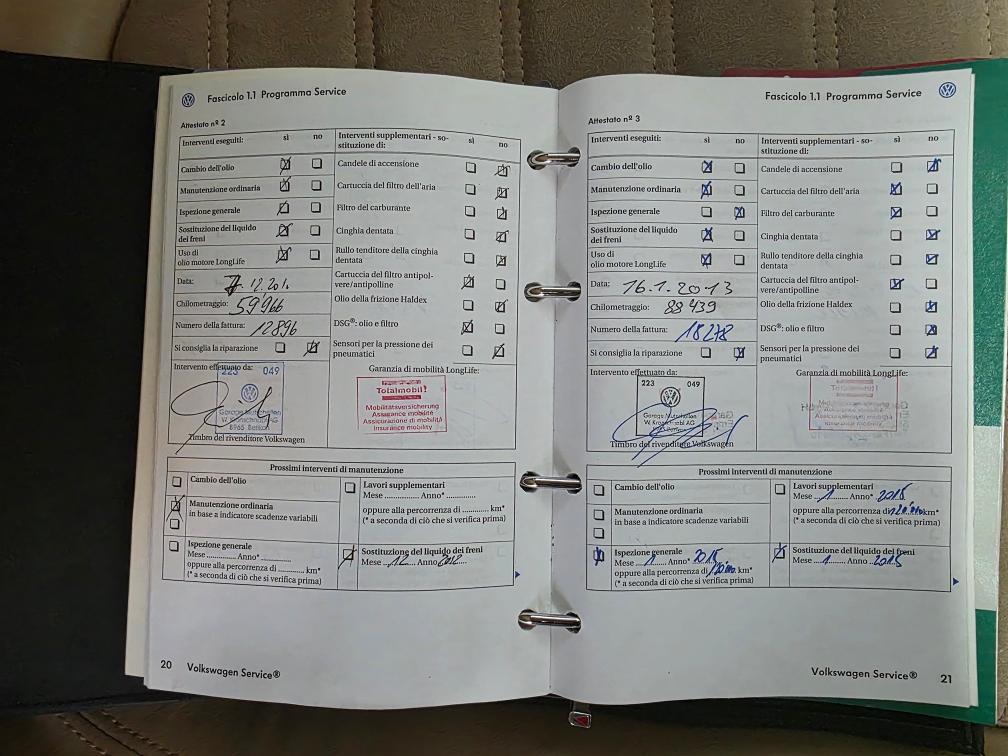 Fascicolo 1.1 Programma Service
Attestato nº 2
Interventi eseguiti: sì no
Cambio dell'olio
Manutenzione ordinaria
Ispezione generale
Sostituzione del liquido
dei freni
Uso di
olio motore LongLife
Data: 7.12.201.
Chilometraggio: 59966
Numero della fattura: 12896
Si consiglia la riparazione
Intervento effettuato da:
223 049
Garage Autohallen
8965
Timbro del rivenditore Volkswagen
Interventi supplementari - so-
stituzione di: sì no
Candele di accensione
Cartuccia del filtro dell'aria
Filtro del carburante
Cinghia dentata
Rullo tenditore della cinghia
dentata
Cartuccia del filtro antipol-
vere/antipolline
Olio della frizione Haldex
DSG®: olio e filtro
Sensori per la pressione dei
pneumatici
Garanzia di mobilità LongLife:
Totalmobil!
Mobilitätsversicherung
Assurance mobilité
Assicurazione di mobilità
Insurance mobility
Prossimi interventi di manutenzione
Cambio dell'olio
Manutenzione ordinaria
in base a indicatore scadenze variabili
Ispezione generale
Mese .............. Anno* ..............
oppure alla percorrenza di .......... km*
(* a seconda di ciò che si verifica prima)
Lavori supplementari
Mese .............. Anno* ..............
oppure alla percorrenza di .......... km*
(* a seconda di ciò che si verifica prima)
Sostituzione del liquido dei freni
Mese 12 Anno 2012
20 Volkswagen Service®
Fascicolo 1.1 Programma Service
Attestato nº 3
Interventi eseguiti: sì no
Cambio dell'olio
Manutenzione ordinaria
Ispezione generale
Sostituzione del liquido
dei freni
Uso di
olio motore LongLife
Data: 16.1.2013
Chilometraggio: 88439
Numero della fattura: 18278
Si consiglia la riparazione
Intervento effettuato da:
223 049
Garage Autohallen
Timbro del rivenditore Volkswagen
Interventi supplementari - so-
stituzione di: sì no
Candele di accensione
Cartuccia del filtro dell'aria
Filtro del carburante
Cinghia dentata
Rullo tenditore della cinghia
dentata
Cartuccia del filtro antipol-
vere/antipolline
Olio della frizione Haldex
DSG®: olio e filtro
Sensori per la pressione dei
pneumatici
Garanzia di mobilità LongLife:
Prossimi interventi di manutenzione
Cambio dell'olio
Manutenzione ordinaria
in base a indicatore scadenze variabili
Ispezione generale
Mese 1 Anno* 2015
oppure alla percorrenza di 120.000 km*
(* a seconda di ciò che si verifica prima)
Lavori supplementari
Mese 1 Anno* 2015
oppure alla percorrenza di 120.000 km*
(* a seconda di ciò che si verifica prima)
Sostituzione del liquido dei freni
Mese 1 Anno 2015
Volkswagen Service® 21